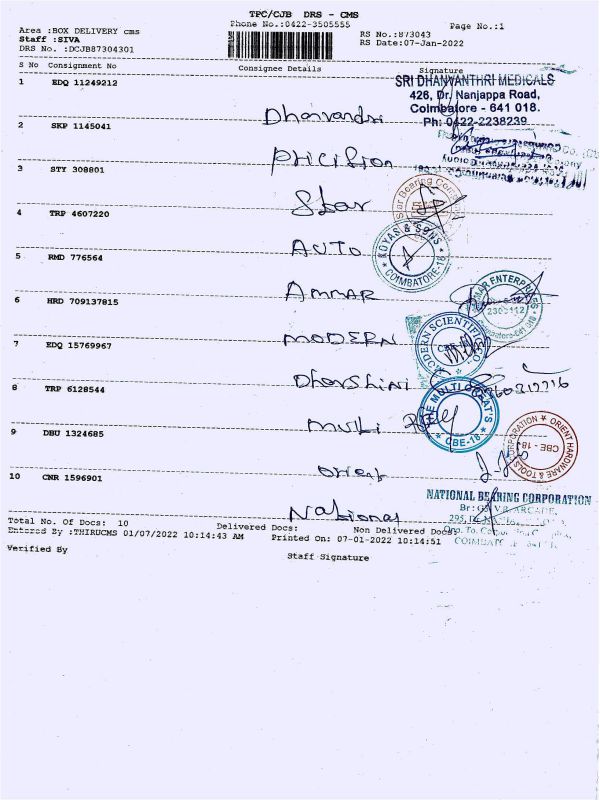 TPC/CJB DRS - CMS
Phone No.:0422-3505555
Page No.:1
Area :BOX DELIVERY cms
Staff :SIVA
DRS No. :DCJB87304301
RS No.:873043
RS Date:07-Jan-2022
S No Consignment No Consignee Details Signature
1 EDQ 11249212 Dhanvandri
SRI DHANVANTHRI MEDICALS
426, Dr. Nanjappa Road,
Coimbatore - 641 018.
Ph: 0422-2238239
2 SKP 1145041
3 STY 308801 Star
Star Bearing
4 TRP 4607220 AUTO
KOYAS & SONS
COIMBATORE-18
5 RMD 776564 AMMAR
AMMAR ENTERPRISES
6 HRD 709137815 MODERN
MODERN SCIENTIFIC
7 EDQ 15769967 Dharshini
8 TRP 6128544 Multi
THE MULTI
CBE-18
9 DBU 1324685 Orient
ORIENT HARDWARE & TOOLS CORPORATION
CBE - 18
10 CNR 1596901 National
NATIONAL BEARING CORPORATION
Total No. Of Docs: 10 Delivered Docs: Non Delivered Docs:
Entered By :THIRUCMS 01/07/2022 10:14:43 AM Printed On: 07-01-2022 10:14:51
Verified By Staff Signature